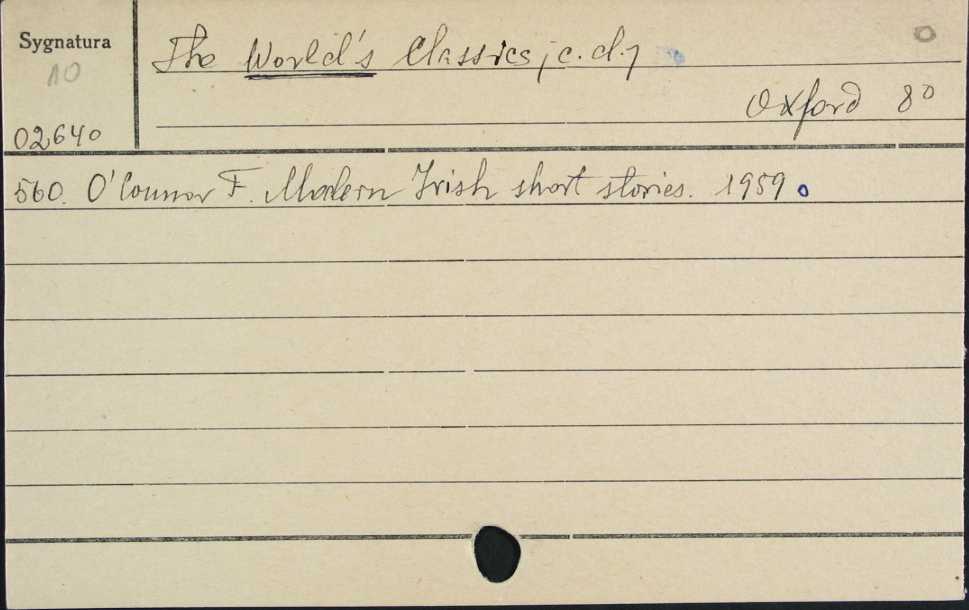 Sygnatura
10
02640
The World's Classics; c. d.;
Oxford 8°
560. O'Connor F. Modern Irish short stories. 1959.